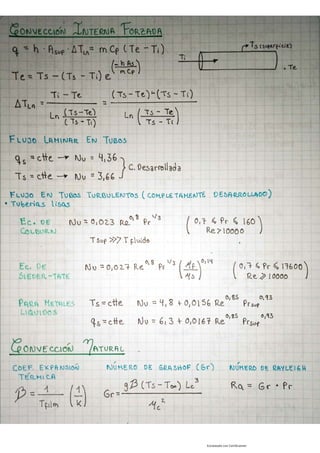 CONVECCIÓN INTERNA FORZADA
q = h · Asup · ΔTLn = m Cp (Te - Ti)
Ti
Ts (superficie)
Te
Te = Ts - (Ts - Ti) e^(-h As / m Cp)
ΔTLn = (Ti - Te) / Ln [(Ts - Te) / (Ts - Ti)] = ((Ts - Te) - (Ts - Ti)) / Ln (Ts - Te / Ts - Ti)
FLUJO LAMINAR EN TUBOS
qs = ctte → Nu = 4,36
Ts = ctte → Nu = 3,66
} C. Desarrollada
FLUJO EN TUBOS TURBULENTOS (COMPLETAMENTE DESARROLLADO)
• Tuberías lisas
EC. DE COLBURN
Nu = 0,023 Re^0,8 Pr^1/3
(0,7 ≤ Pr ≤ 160
Re > 10000)
Tsup >>> Tfluido
EC. DE SIEDER-TATE
Nu = 0,027 Re^0,8 Pr^1/3 (μf / μs)^0,14
(0,7 ≤ Pr ≤ 17600
Re ≥ 10000)
PARA METALES LIQUIDOS
Ts = ctte Nu = 4,8 + 0,0156 Re^0,85 Prsup^0,93
qs = ctte Nu = 6,3 + 0,0167 Re^0,85 Prsup^0,93
CONVECCIÓN NATURAL
COEF. EXPANSIÓN TÉRMICA
NÚMERO DE GRASHOF (Gr)
NÚMERO DE RAYLEIGH
β = 1 / Tfilm (1/K)
Gr = gβ (Ts - T∞) Lc³ / μc²
Ra = Gr · Pr
Escaneado con CamScanner